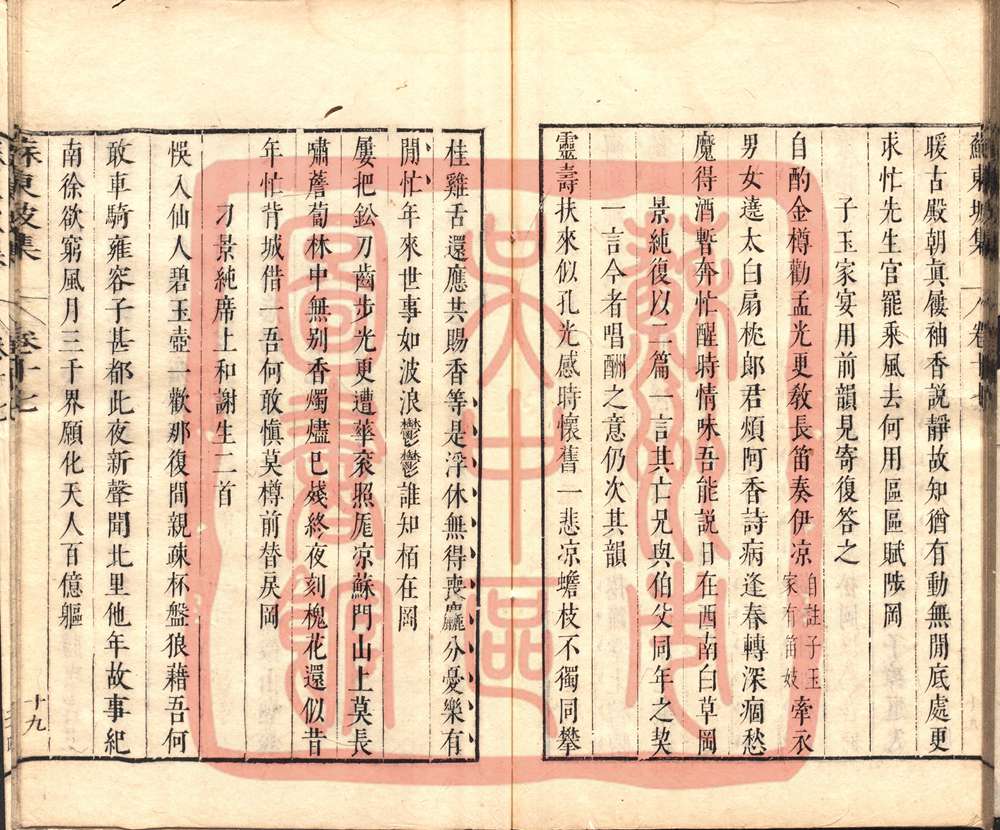 蘇東坡集 卷十
暖古殿朝真屢袖香説靜故知猶有動無閒底處更
求忙先生官罷乘風去何用區區賦陟岡
子玉家宴用前韻見寄復答之
自酌金樽勸孟光更教長笛奏伊凉自註子玉家有笛妓牽衣
男女遶太白扇枕郎君煩阿香詩病逢春轉深痼愁
魔得酒暫奔忙醒時情味吾能説日在西南白草岡
景純復以二篇一言其亡兄與伯父同年之契
一言今者唱酬之意仍次其韻
靈壽扶來似孔光感時懷舊一悲凉蟾枝不獨同攀
桂雞舌還應共賜香等是浮休無得喪麤分憂樂有
閒忙年來世事如波浪鬱鬱誰知栢在岡
屢把鉛刀齒步光更遭華衮照厖凉蘇門山上莫長
嘯薝蔔林中無别香燭燼已殘終夜刻槐花還似昔
年忙背城借一吾何敢愼莫樽前替戾岡
刁景純席上和謝生二首
悞入仙人碧玉壺一歡那復間親疎杯盤狼藉吾何
敢車騎雍容子甚都此夜新聲聞北里他年故事紀
南徐欲窮風月三千界願化天人百億軀
十九
蘇東坡集 卷十七
蘇州市
吳中區
圖書館